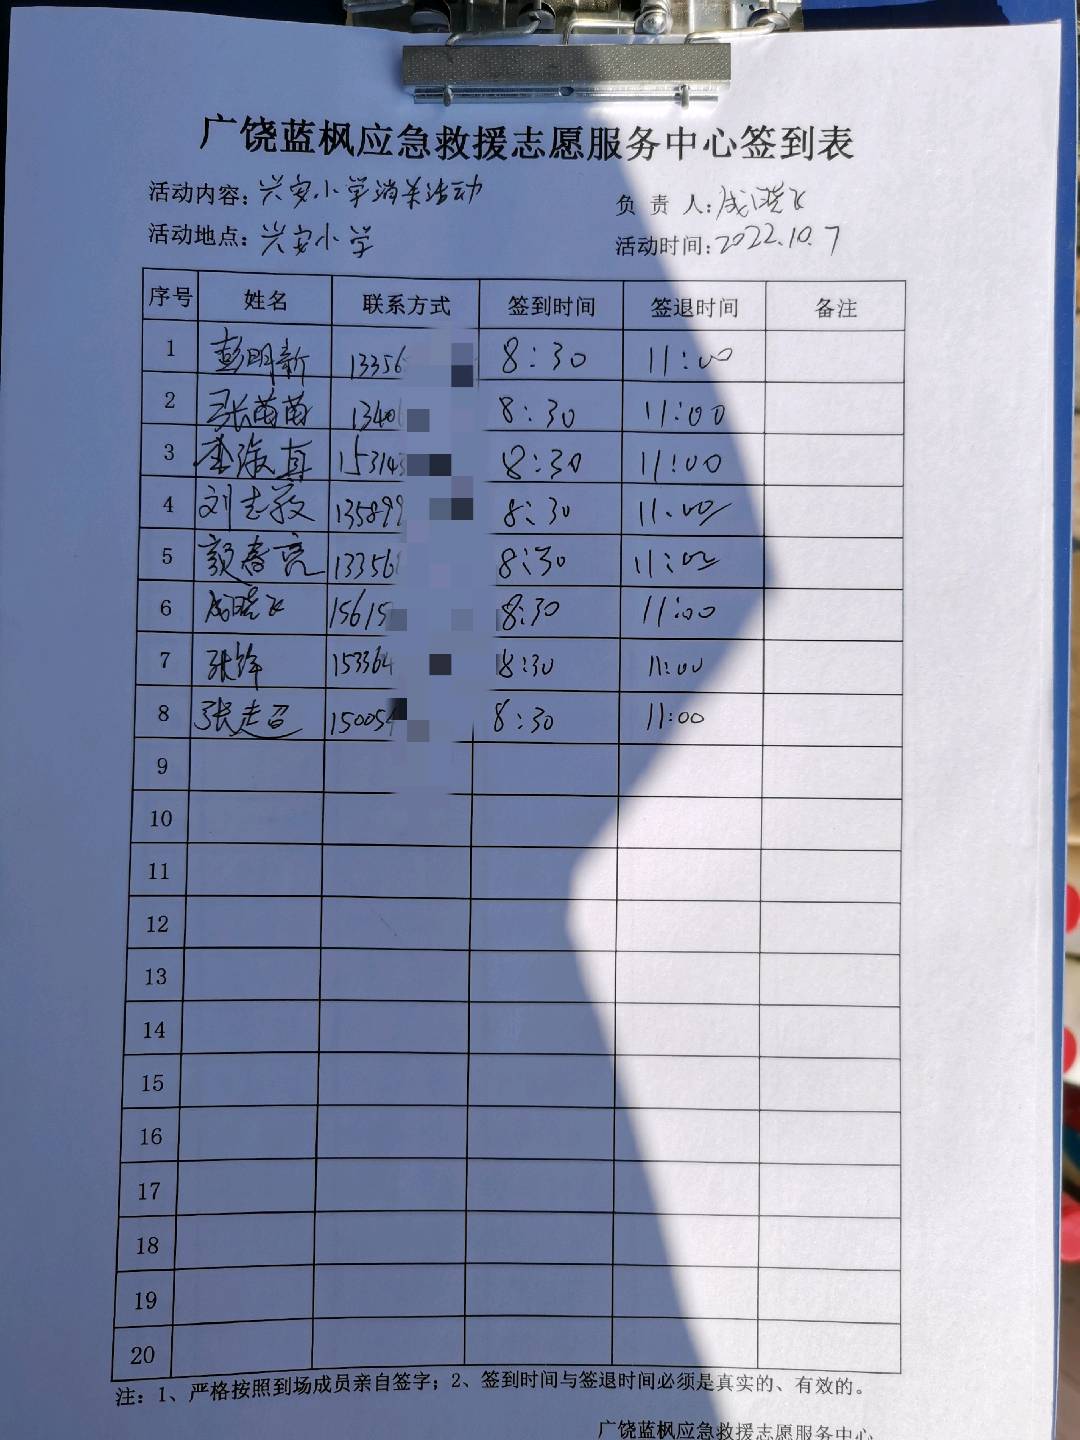 广饶蓝枫应急救援志愿服务中心签到表
活动内容：兴安小学消杀活动 负 责 人：成晓飞
活动地点：兴安小学 活动时间：2022.10.7
序号 姓名 联系方式 签到时间 签退时间 备注
1 彭明新 13356 8:30 11:00
2 张苗苗 1340 8:30 11:00
3 李淑真 153143 8:30 11:00
4 刘志敬 135899 8:30 11:00
5 颜春亮 13356 8:30 11:00
6 成晓飞 15615 8:30 11:00
7 张锋 153364 8:30 11:00
8 张走召 15005 8:30 11:00
9
10
11
12
13
14
15
16
17
18
19
20
注：1、严格按照到场成员亲自签字；2、签到时间与签退时间必须是真实的、有效的。
广饶蓝枫应急救援志愿服务中心